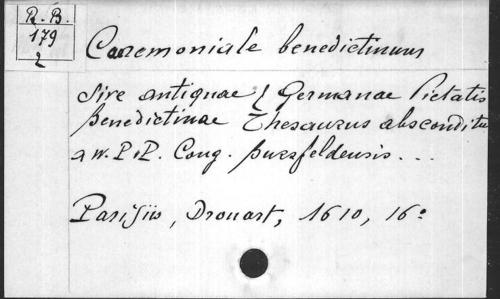 R. B.
179
2
Caeremoniale benedictinum
sive antiquae & Germanae Pietatis
Benedictinae Thesaurus absconditu
a w. P. P. Cong. Burzfeldensis...
Parisiis, Drouart, 1610, 16º